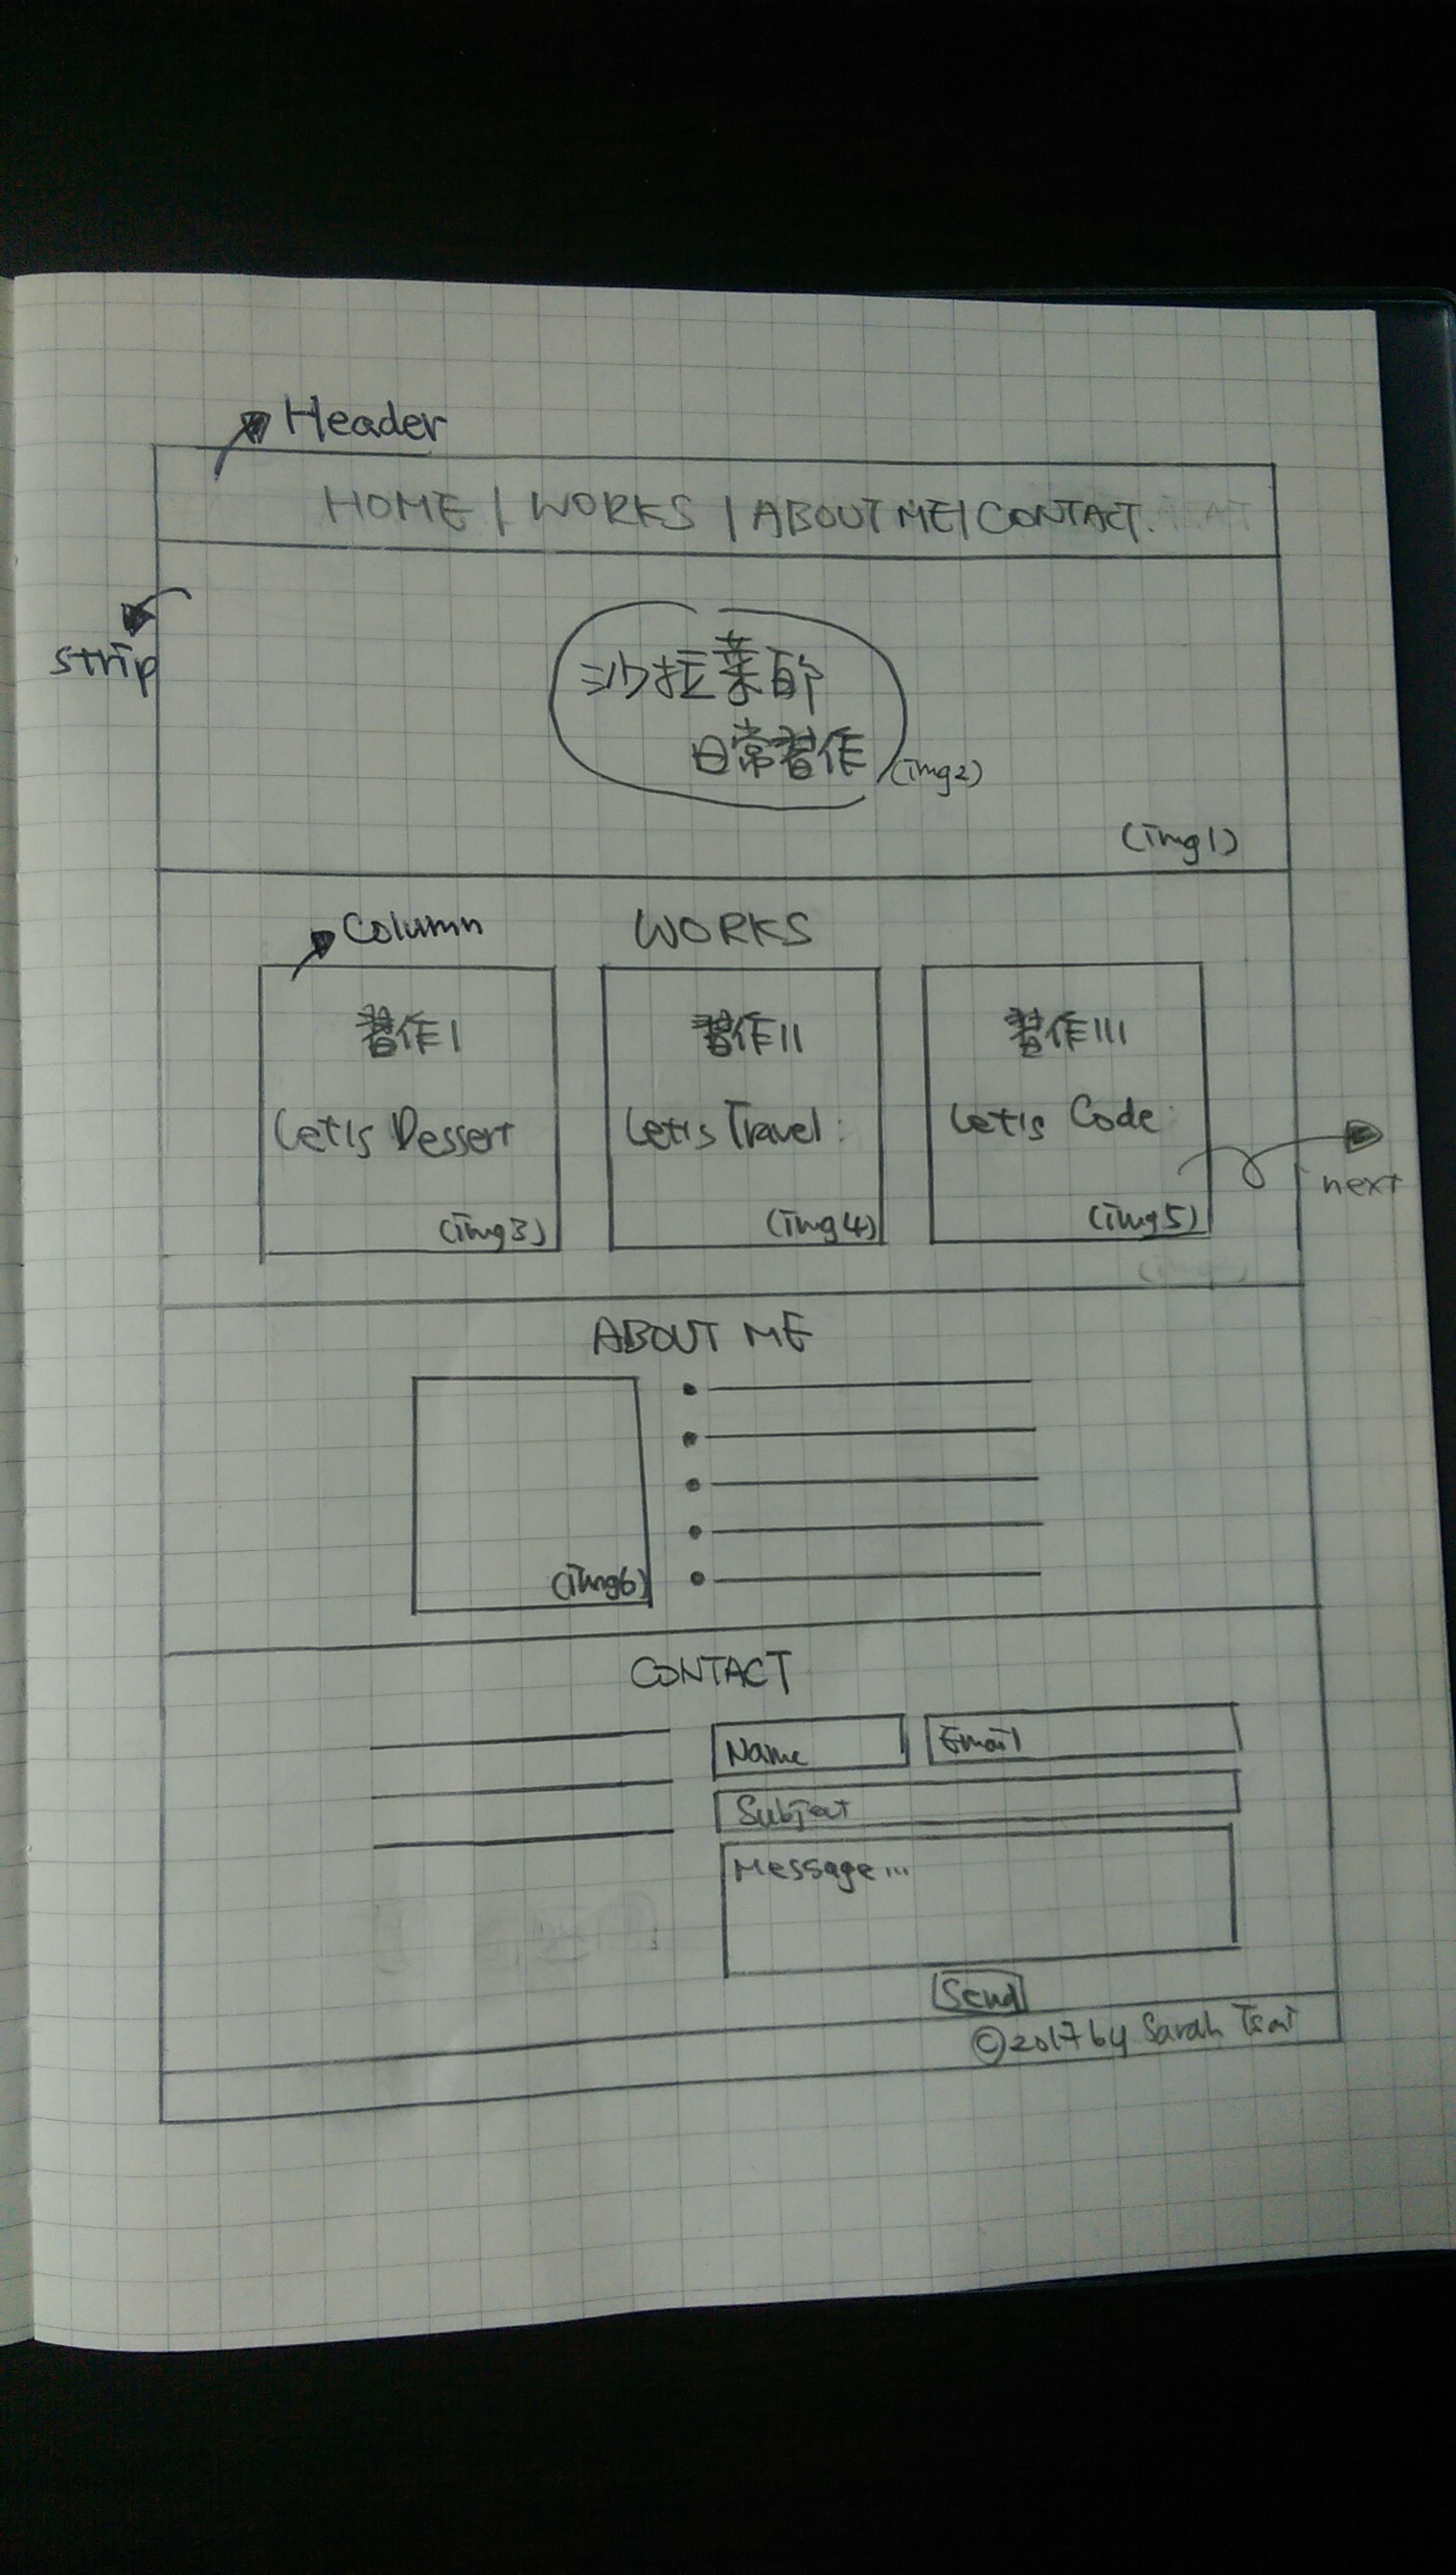 Header
HOME | WORKS | ABOUT ME | CONTACT.
strip
沙拉菜的
日常習作
(img2)
(img1)
Column
WORKS
習作I
Let's Dessert
(img3)
習作II
Let's Travel
(img4)
習作III
Let's Code
(img5)
next
ABOUT ME
(img6)
CONTACT
Name
Email
Subject
Message...
Send
©2017 by Sarah Tsai